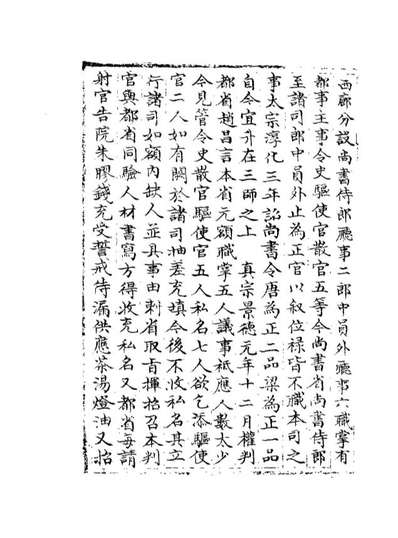 西廊分設尚書侍郎廳事二郎中員外廳事六職掌有
都事主事令史驅使官散官五等今尚書省尚書侍郎
至諸司郎中員外止為正官以敘位祿皆不職本司之
事太宗淳化三年詔尚書令唐為正二品梁為正一品
自今宜升在三師之上 真宗景德元年十二月權判
都省趙昌言本省元額職掌五人議事祗應人數太少
今見管令史散官驅使官五人私名七人欲乞添驅使
官二人如有闕於諸司抽差充填今後不收私名其立
行諸司如額內缺人並具事由刺省取旨揮招召本判
官與都省同驗人材書寫方得收充私名又都省每請
射官告院朱膠錢充受誓戒待漏供應茶湯燈油又招